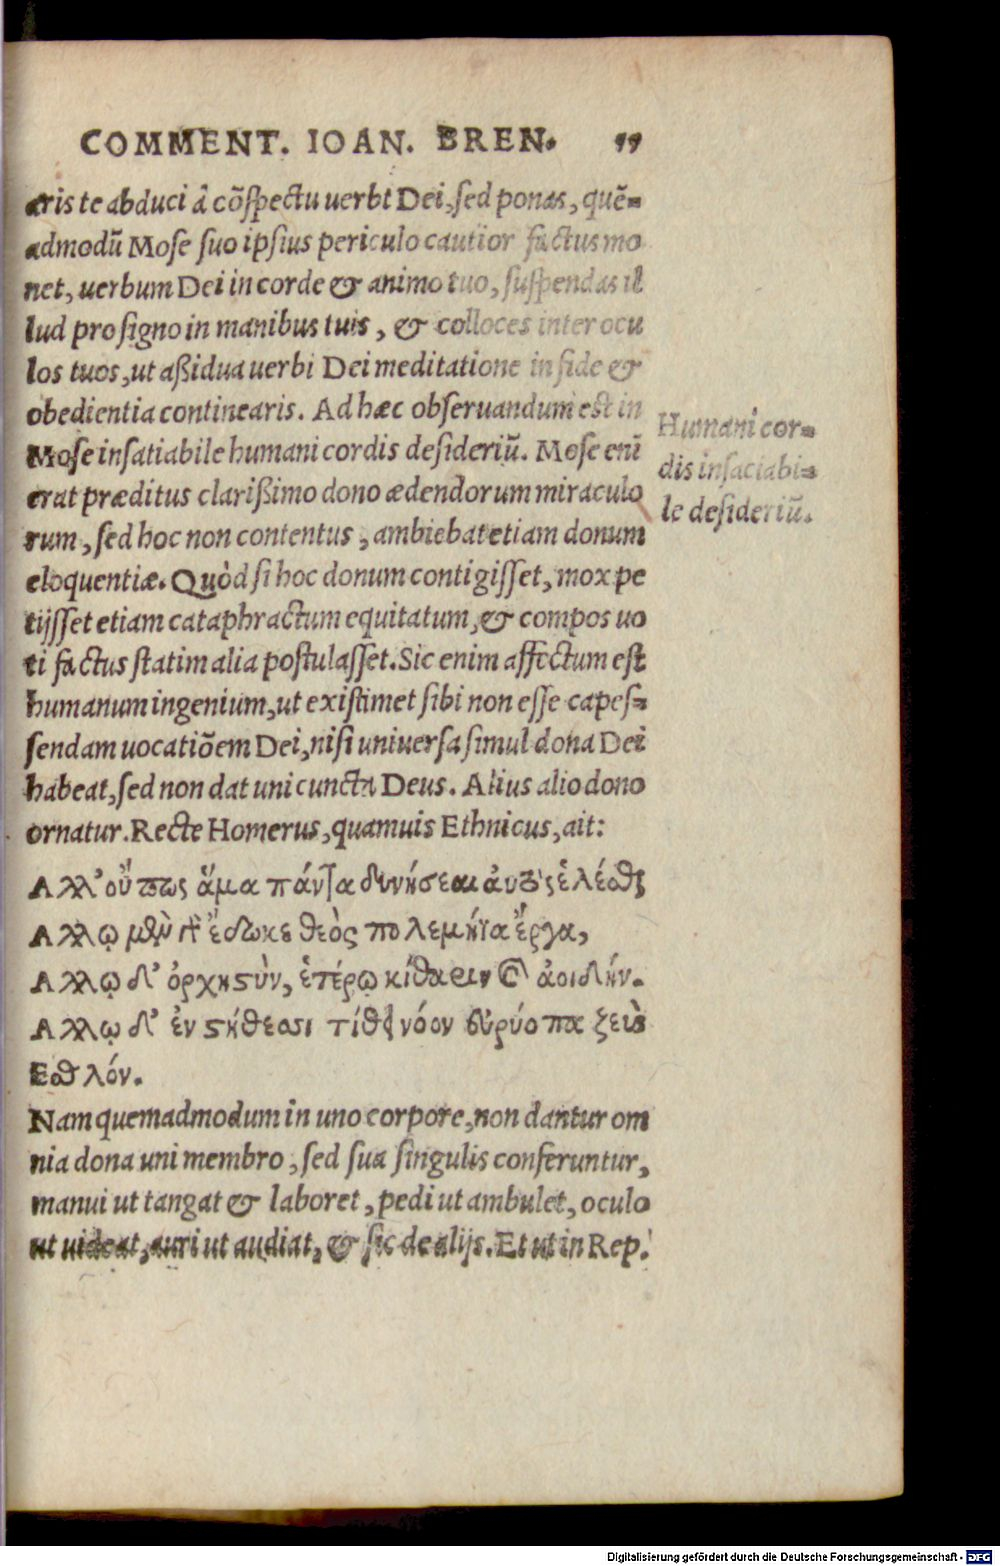 COMMENT. IOAN. BREN. 55
æris te abduci à cōspectu uerbi Dei, sed ponas, quē=
admodū Mose suo ipsius periculo cautior factus mo
net, uerbum Dei in corde & animo tuo, suspendas il
lud pro signo in manibus tuis, & colloces inter ocu
los tuos, ut aßidua uerbi Dei meditatione in fide &
obedientia continearis. Ad hæc obseruandum est in
Mose insatiabile humani cordis desideriū. Mose enī
erat præditus clarißimo dono ædendorum miraculo
rum, sed hoc non contentus, ambiebat etiam donum
eloquentiæ. Quòd si hoc donum contigisset, mox pe
tijsset etiam cataphractum equitatum, & compos uo
ti factus statim alia postulasset. Sic enim affectum est
humanum ingenium, ut existimet sibi non esse capes=
sendam uocatiōem Dei, nisi uniuersa simul dona Dei
habeat, sed non dat uni cuncta Deus. Alius alio dono
ornatur. Recte Homerus, quamuis Ethnicus, ait:
Humani cor=
dis insaciabi=
le desideriū.
Αλλ' οὔπως ἅμα πάντα δυνήσεαι αὐτὸς ἑλέσθαι
Αλλῳ μὲν γὰρ ἔδωκε θεὸς πολεμήϊα ἔργα,
Αλλῳ δ' ὀρχηστὺν, ἑτέρῳ κίθαριν καὶ ἀοιδήν.
Αλλῳ δ' ἐν στήθεσσι τίθει νόον εὐρύοπα ζεὺς
Εσθλόν.
Nam quemadmodum in uno corpore, non dantur om
nia dona uni membro, sed sua singulis conferuntur,
manui ut tangat & laboret, pedi ut ambulet, oculo
ut uideat, auri ut audiat, & sic de alijs. Et ut in Rep.
Digitalisierung gefördert durch die Deutsche Forschungsgemeinschaft - DFG